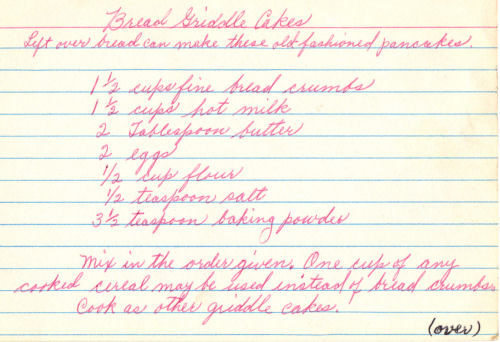 Bread Griddle Cakes
Left over bread can make these old fashioned pancakes.
1 1/2 cups fine bread crumbs
1 1/2 cups hot milk
2 Tablespoon butter
2 eggs
1/2 cup flour
1/2 teaspoon salt
3 1/2 teaspoon baking powder
Mix in the order given. One cup of any
cooked cereal may be used instead of bread crumbs.
Cook as other griddle cakes.
(over)